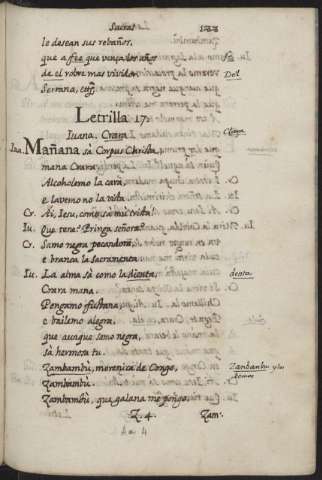 Sacras 133
le desean sus rebaños,
que a fee que vença los años
de el robre mas vividor. Del
Serrana, etc.
Letrilla 17.
Iuana. Crara Clara
Iua. Mañana sà Corpus Christa
mana Crara
Alcoholemo la cara,
e lavemo no la vista.
Cr. Ai, Iesu, como sà mu trista
Iu. Que tene? Pringa señora?
Cr. Samo negra pecandora,
e branca la Sacramenta.
Iu. La alma sà como la dienta, denta
Crara mana.
Pongamo fustana,
e bailemo alegra,
que aunque samo negra,
sà hermosa tu.
Zambambù, morenica de Congo, Zambambu y los demas
Zambambù.
Zambambù, que galana me pongo,
Z. 4. Zam-